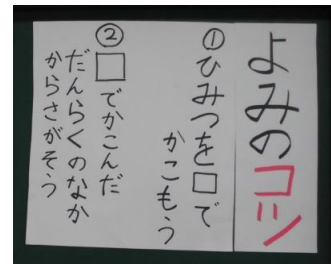 よみのコツ
①ひみつを□で
かこもう
②□でかこんだ
だんらくのなか
からさがそう